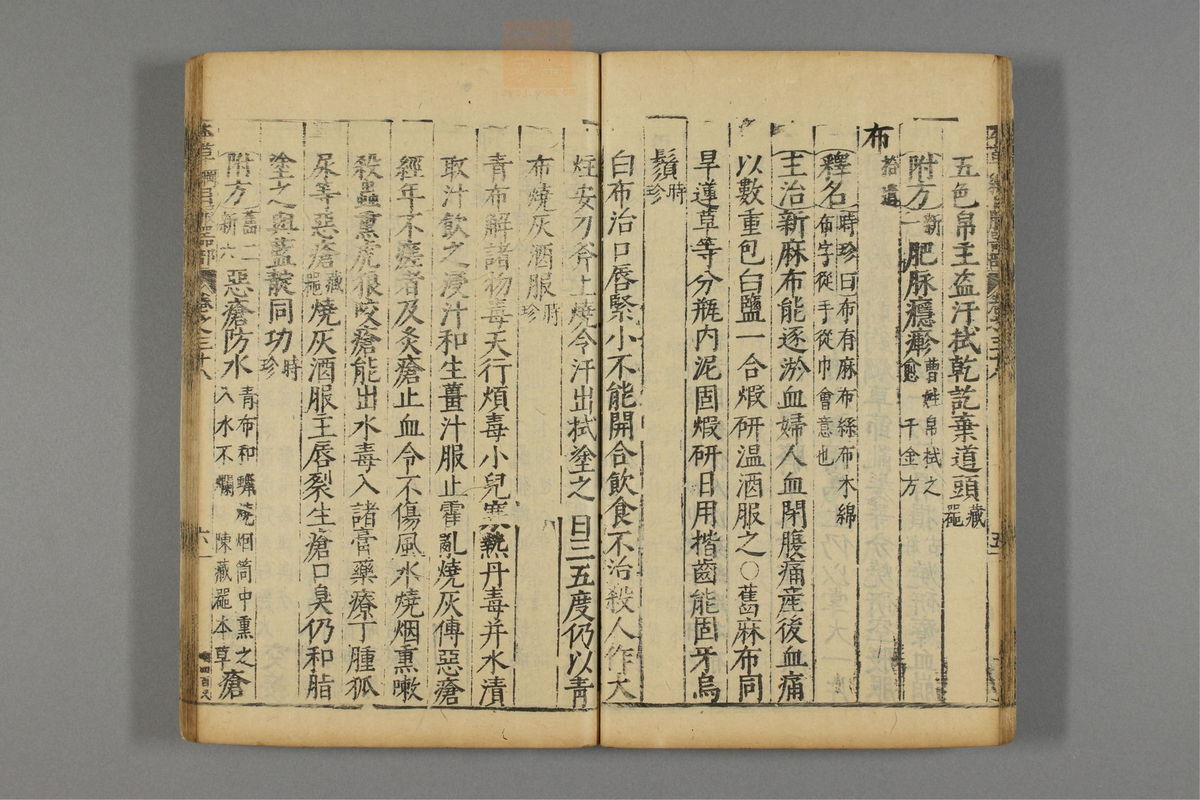 五色帛主盜汗拭乾訖棄道頭藏器
附方新一肥脉癮𤺋曹姓帛拭之愈千金方
布拾遺
釋名時珍曰布有麻布絲布木綿布字從手從巾會意也
主治新麻布能逐淤血婦人血閉腹痛產後血痛
以數重包白鹽一合煅研温酒服之○舊麻布同
旱蓮草等分瓶内泥固煅研日用揩齒能固牙烏
鬚時珍
白布治口唇緊小不能開合飲食不治殺人作大
炷安刀斧上燒令汗出拭塗之日三五度仍以青
布燒灰酒服時珍
青布解諸物毒天行煩毒小兒寒熱丹毒并水漬
取汁飲之浸汁和生薑汁服止霍亂燒灰傅惡瘡
經年不瘥者及灸瘡止血令不傷風水燒烟熏嗽
殺蟲熏虎狼咬瘡能出水毒入諸膏藥療丁腫狐
尿等惡瘡藏器燒灰酒服主唇裂生瘡口臭仍和脂
塗之與藍靛同功時珍
附方舊二新六惡瘡防水青布和蠟燒烟筒中熏之入水不爛陳藏器本草瘡
本草綱目服器部卷之三十八 六